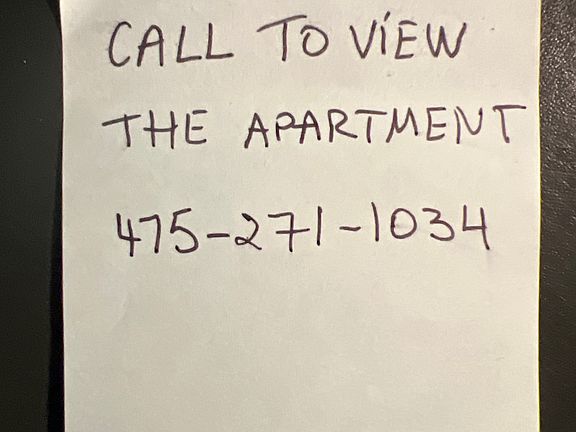 CALL TO VIEW
THE APARTMENT
475-271-1034